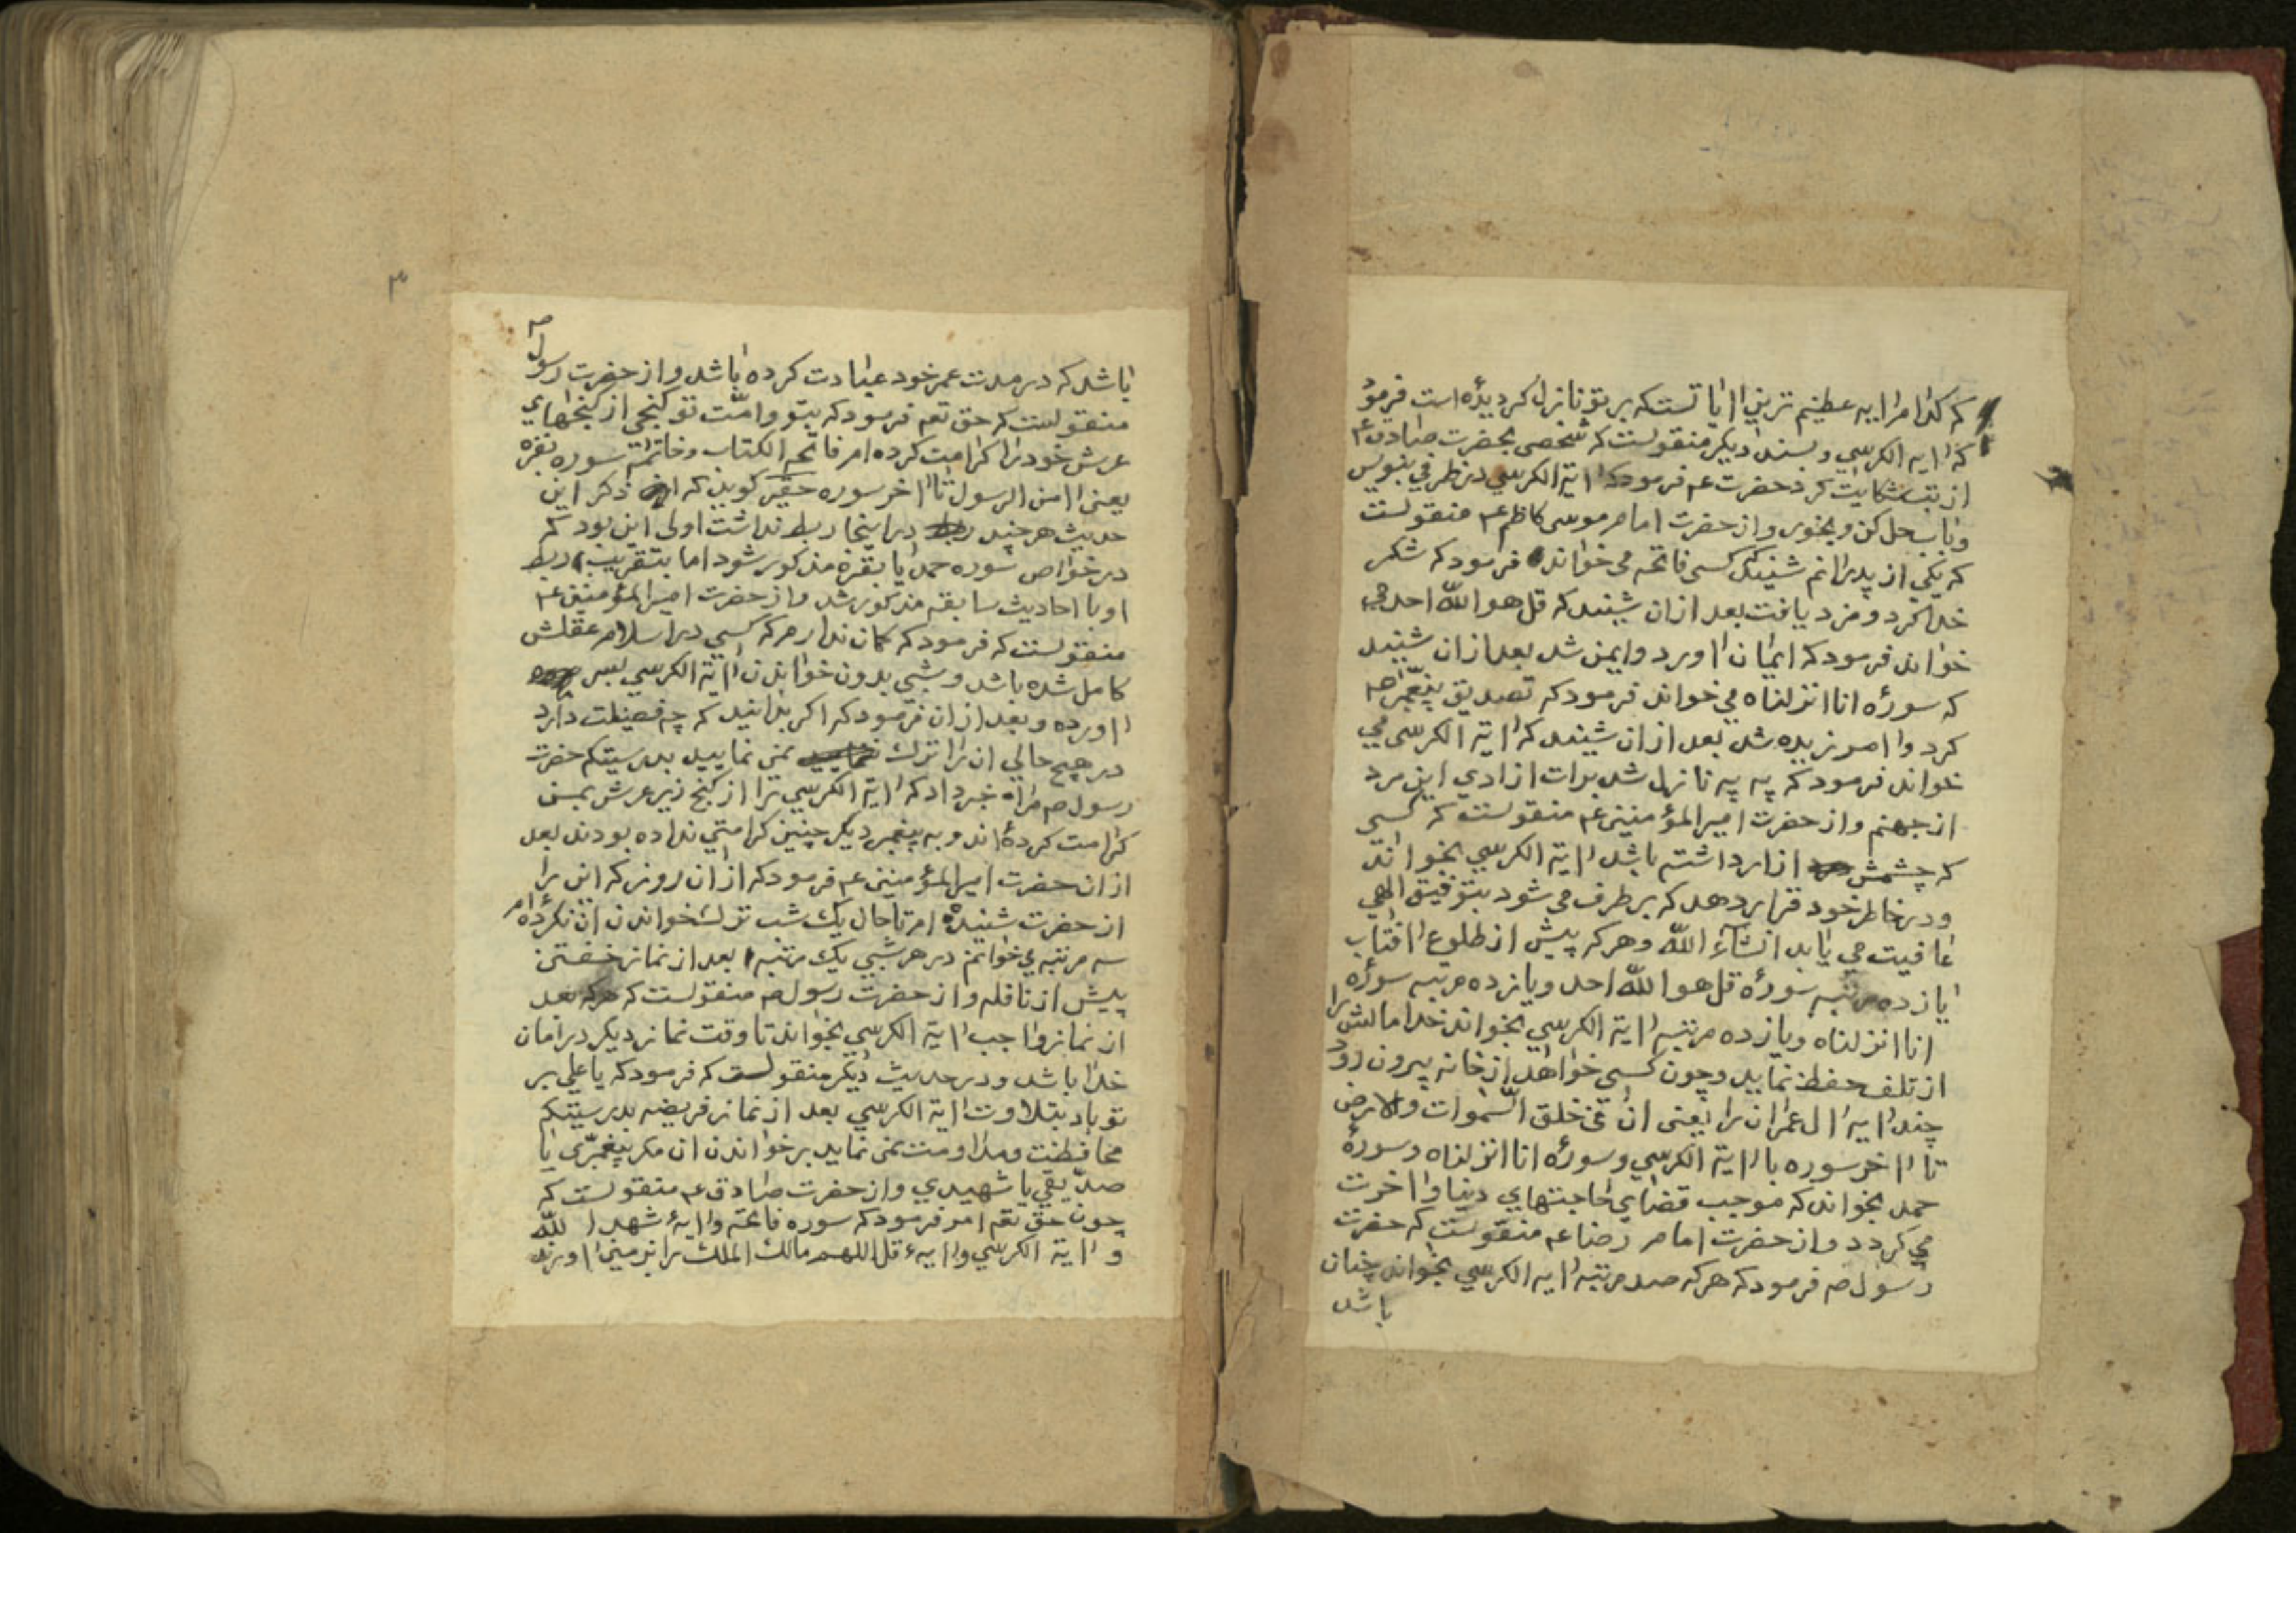 که کدام ایه عظیم ترین ایاتست که بر تو نازل گردیده است فرمود
که ایه الکرسی و بسند دیگر منقولست که شخصی بحضرت صادق ع
از تب شکایت کرد حضرت ع فرمود که ایة الکرسی در ظرفی بنویس
وباب حل کن و بخور و از حضرت امام موسی کاظم ع منقولست
که یکی از پدرانم شنید که کسی فاتحه می خواند فرمود که شکر
خدا کرد و مزد یافت بعد ازان شنید که قل هو اللّه احد می
خواند فرمود که ایمان اورد وایمن شد بعد ازان شنید
که سورهٔ انا انزلناه می خواند فرمود که تصدیق پیغمبر ص
کرد و امرزیده شد بعد ازان شنید که ایة الکرسی می
خواند فرمود که په په نازل شد برات ازادی این مرد
از جهنم واز حضرت امیر المؤمنین ع منقولست که کسی
که چشمش ازار داشته باشد ایة الکرسی بخواند
ودر خاطر خود قرار دهد که بر طرف می شود بتوفیق الهی
عافیت می یابد انشآء اللّه وهر که پیش از طلوع افتاب
یازده مرتبه سورهٔ قل هو اللّه احد ویازده مرتبه سورهٔ
انا انزلناه ویازده مرتبه ایة الکرسی بخواند خدا مالش را
از تلف حفظ نماید وچون کسی خواهد از خانه بیرون رود
چند ایه ال عمران را یعنی ان فی خلق السّموات والارض
تا اخر سوره با ایة الکرسی وسورهٔ انا انزلناه وسورهٔ
حمد بخواند که موجب قضای حاجتهای دنیا واخرت
می کردد واز حضرت امام رضا ع منقولست که حضرت
رسول ص فرمود که هر که صد مرتبه ایه الکرسی بخواند چنان
باشد
۳
باشد که در مدت عمر خود عبادت کرده باشد واز حضرت رسول ص
منقولست که حق تعه فرمود که بتو وامّت تو کنجی از کنجهای
عرش خود را کرامت کرده ام فاتحه الکتاب وخاتمهٔ سوره بقره
یعنی امن الرسول تا اخر سوره حقیر کوید که ذکر این
حدیث هر چند دراینجا ربط نداشت اولی این بود که
در خواص سوره حمد یا بقره مذکور شود اما بتقریب ربط
او با احادیث سابقه مذکور شد واز حضرت امیر المؤمنین ع
منقولست که فرمود که کمان ندارم که کسی در اسلام عقلش
کامل شده باشد وشبی بدون خواندن ایة الکرسی بسر
اورده وبعد ازان فرمود که اکر بدانید که چه فضیلت دارد
در هیچ حالی ان را ترک نمی نمایید بدرستیکه حضرت
رسول ص مرا خبر داد که ایة الکرسی را از کنج زیر عرش بمن
کرامت کردهٔ اند وبه پیغمبر دیکر چنین کرامتی نداده بودند بعد
ازان حضرت امیر المؤمنین ع فرمود که ازان روز که این را
از حضرت شنیدهٔ ام تا حال یک شب ترک خواندن ان نکردهٔ ام
سه مرتبه می خوانم در هر شبی یک مرتبه بعد از نماز خفتن
پیش از نافله واز حضرت رسول ص منقولست که هر که بعد
از نماز واجب ایة الکرسی بخواند تا وقت نماز دیکر در امان
خدا باشد ودر حدیث دیکر منقولست که فرمود که یا علی بر
تو باد بتلاوت ایة الکرسی بعد از نماز فریضه بدرستیکه
محافظت ومداومت نمی نماید بر خواندن ان مکر پیغمبری یا
صدّیقی یا شهیدی واز حضرت صادق ع منقولست که
چون حق تعه امر فرمود که سوره فاتحه وایهٔ شهد اللّه
وایة الکرسی وایهٔ قل اللهم مالک الملک را بزمین اورند